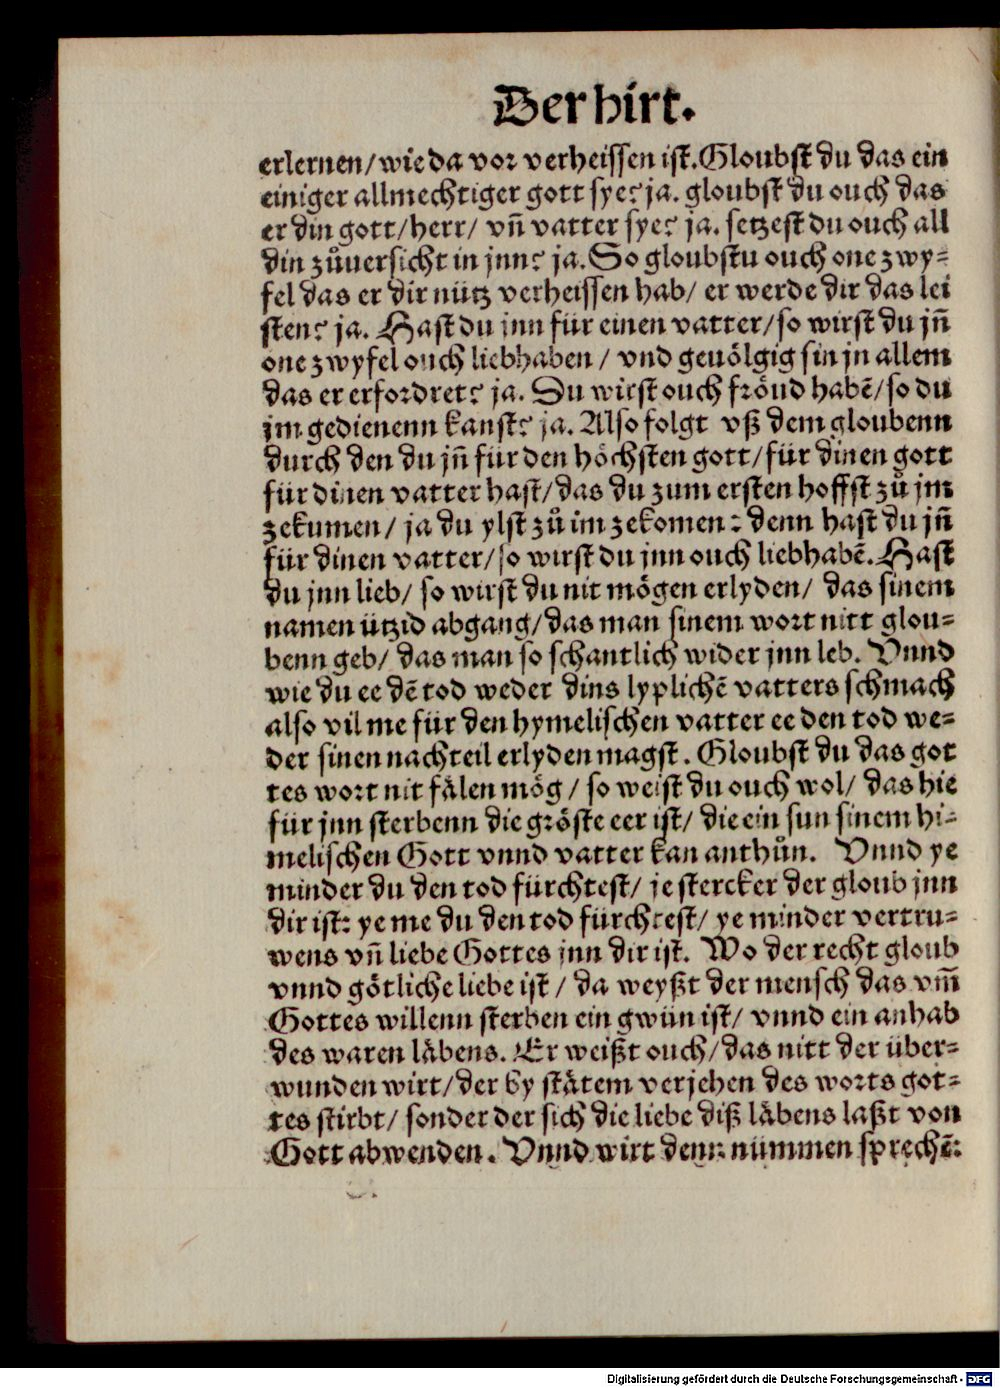 Der hirt.
erlernen/wie da vor verheissen ist. Gloubst du das ein
einiger allmechtiger gott sye? ja. gloubst du ouch das
er din gott/herr/ vñ vatter sye? ja. setzest du ouch all
din zůuersicht in jnn? ja. So gloubstu ouch one zwy-
fel das er dir nütz verheissen hab/ er werde dir das lei
sten? ja. Hast du jnn für einen vatter/so wirst du jñ
one zwyfel ouch liebhaben / vnd geuölgig sin jn allem
das er erfordret? ja. Du wirst ouch fröud habē/so du
jm gedienenn kanst? ja. Also folgt vß dem gloubenn
durch den du jñ für den höchsten gott/für dinen gott
für dinen vatter hast/das du zum ersten hoffst zů jm
zekumen/ ja du ylst zů im zekomen: denn hast du jñ
für dinen vatter/so wirst du jnn ouch liebhabē. Hast
du jnn lieb/ so wirst du nit mögen erlyden/ das sinem
namen ützid abgang/das man sinem wort nitt glou-
benn geb/ das man so schantlich wider jnn leb. Vnnd
wie du ee dē tod weder dins lyplichē vatters schmach
also vil me für den hymelischen vatter ee den tod we-
der sinen nachteil erlyden magst. Gloubst du das got
tes wort nit fälen mög / so weist du ouch wol/ das hie
für jnn sterbenn die gröste eer ist/ die ein sun sinem hi-
melischen Gott vnnd vatter kan anthůn. Vnnd ye
minder du den tod fürchtest/ je stercker der gloub jnn
dir ist: ye me du den tod fürchtest/ ye minder vertru-
wens vñ liebe Gottes jnn dir ist. Wo der recht gloub
vnnd götliche liebe ist / da weyßt der mensch das vm̄
Gottes willenn sterben ein gwün ist/ vnnd ein anhab
des waren läbens. Er weißt ouch/das nitt der über-
wunden wirt/der by stätem verjehen des worts got-
tes stirbt/ sonder der sich die liebe diß läbens laßt von
Gott abwenden. Vnnd wirt denn nümmen sprechē:
Digitalisierung gefördert durch die Deutsche Forschungsgemeinschaft - DFG